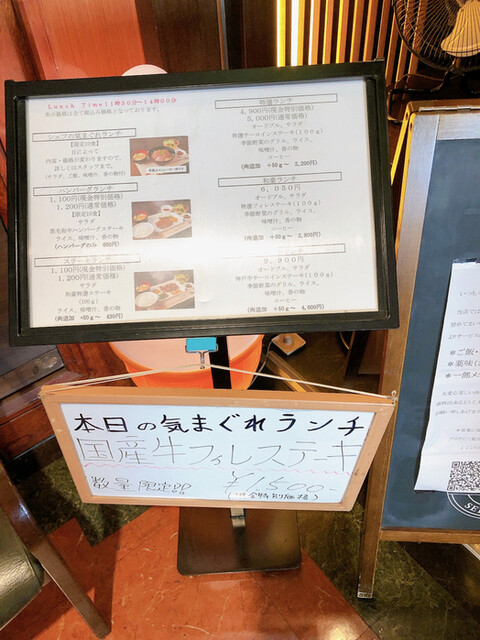 Lunch Time11時30分～14時00分
表示価格は全て税込み価格となっております。
シェフの気まぐれランチ
【限定10食】
日によって
内容・価格が変わりますので、
詳しくはスタッフまで。
(サラダ、ご飯、味噌汁、香の物)
ハンバーグランチ
1,100円(現金特別価格)
1,200円(通常価格)
【限定10食】
サラダ
黒毛和牛ハンバーグステーキ
ライス、味噌汁、香の物
(ハンバーグのみ 660円)
ステーキランチ
1,100円(現金特別価格)
1,200円(通常価格)
サラダ
和歌特選ステーキ
(100g)
ライス、味噌汁、香の物
コーヒー
(肉追加 +50g～ 430円)
特選ランチ
4,900円(現金特別価格)
5,000円(通常価格)
オードブル、サラダ
特選サーロインステーキ(100g)
季節野菜のグリル、ライス、
味噌汁、香の物
コーヒー
(肉追加 +50g～ 2,200円)
和楽ランチ
6,050円
オードブル、サラダ
特選フィレステーキ(100g)
季節野菜のグリル、ライス、
味噌汁、香の物
コーヒー
(肉追加 +50g～ 2,800円)
ランチ
9,900円
オードブル、サラダ
神戸牛サーロインステーキ(100g)
季節野菜のグリル、ライス、
味噌汁、香の物
コーヒー
(肉追加 +50g～ 4,600円)
本日の気まぐれランチ
国産牛フィレステーキ
数量限定
¥1,500-
(現金特別価格)
いつも
当店では
＊ご飯・
＊薬味(
＊一部メ